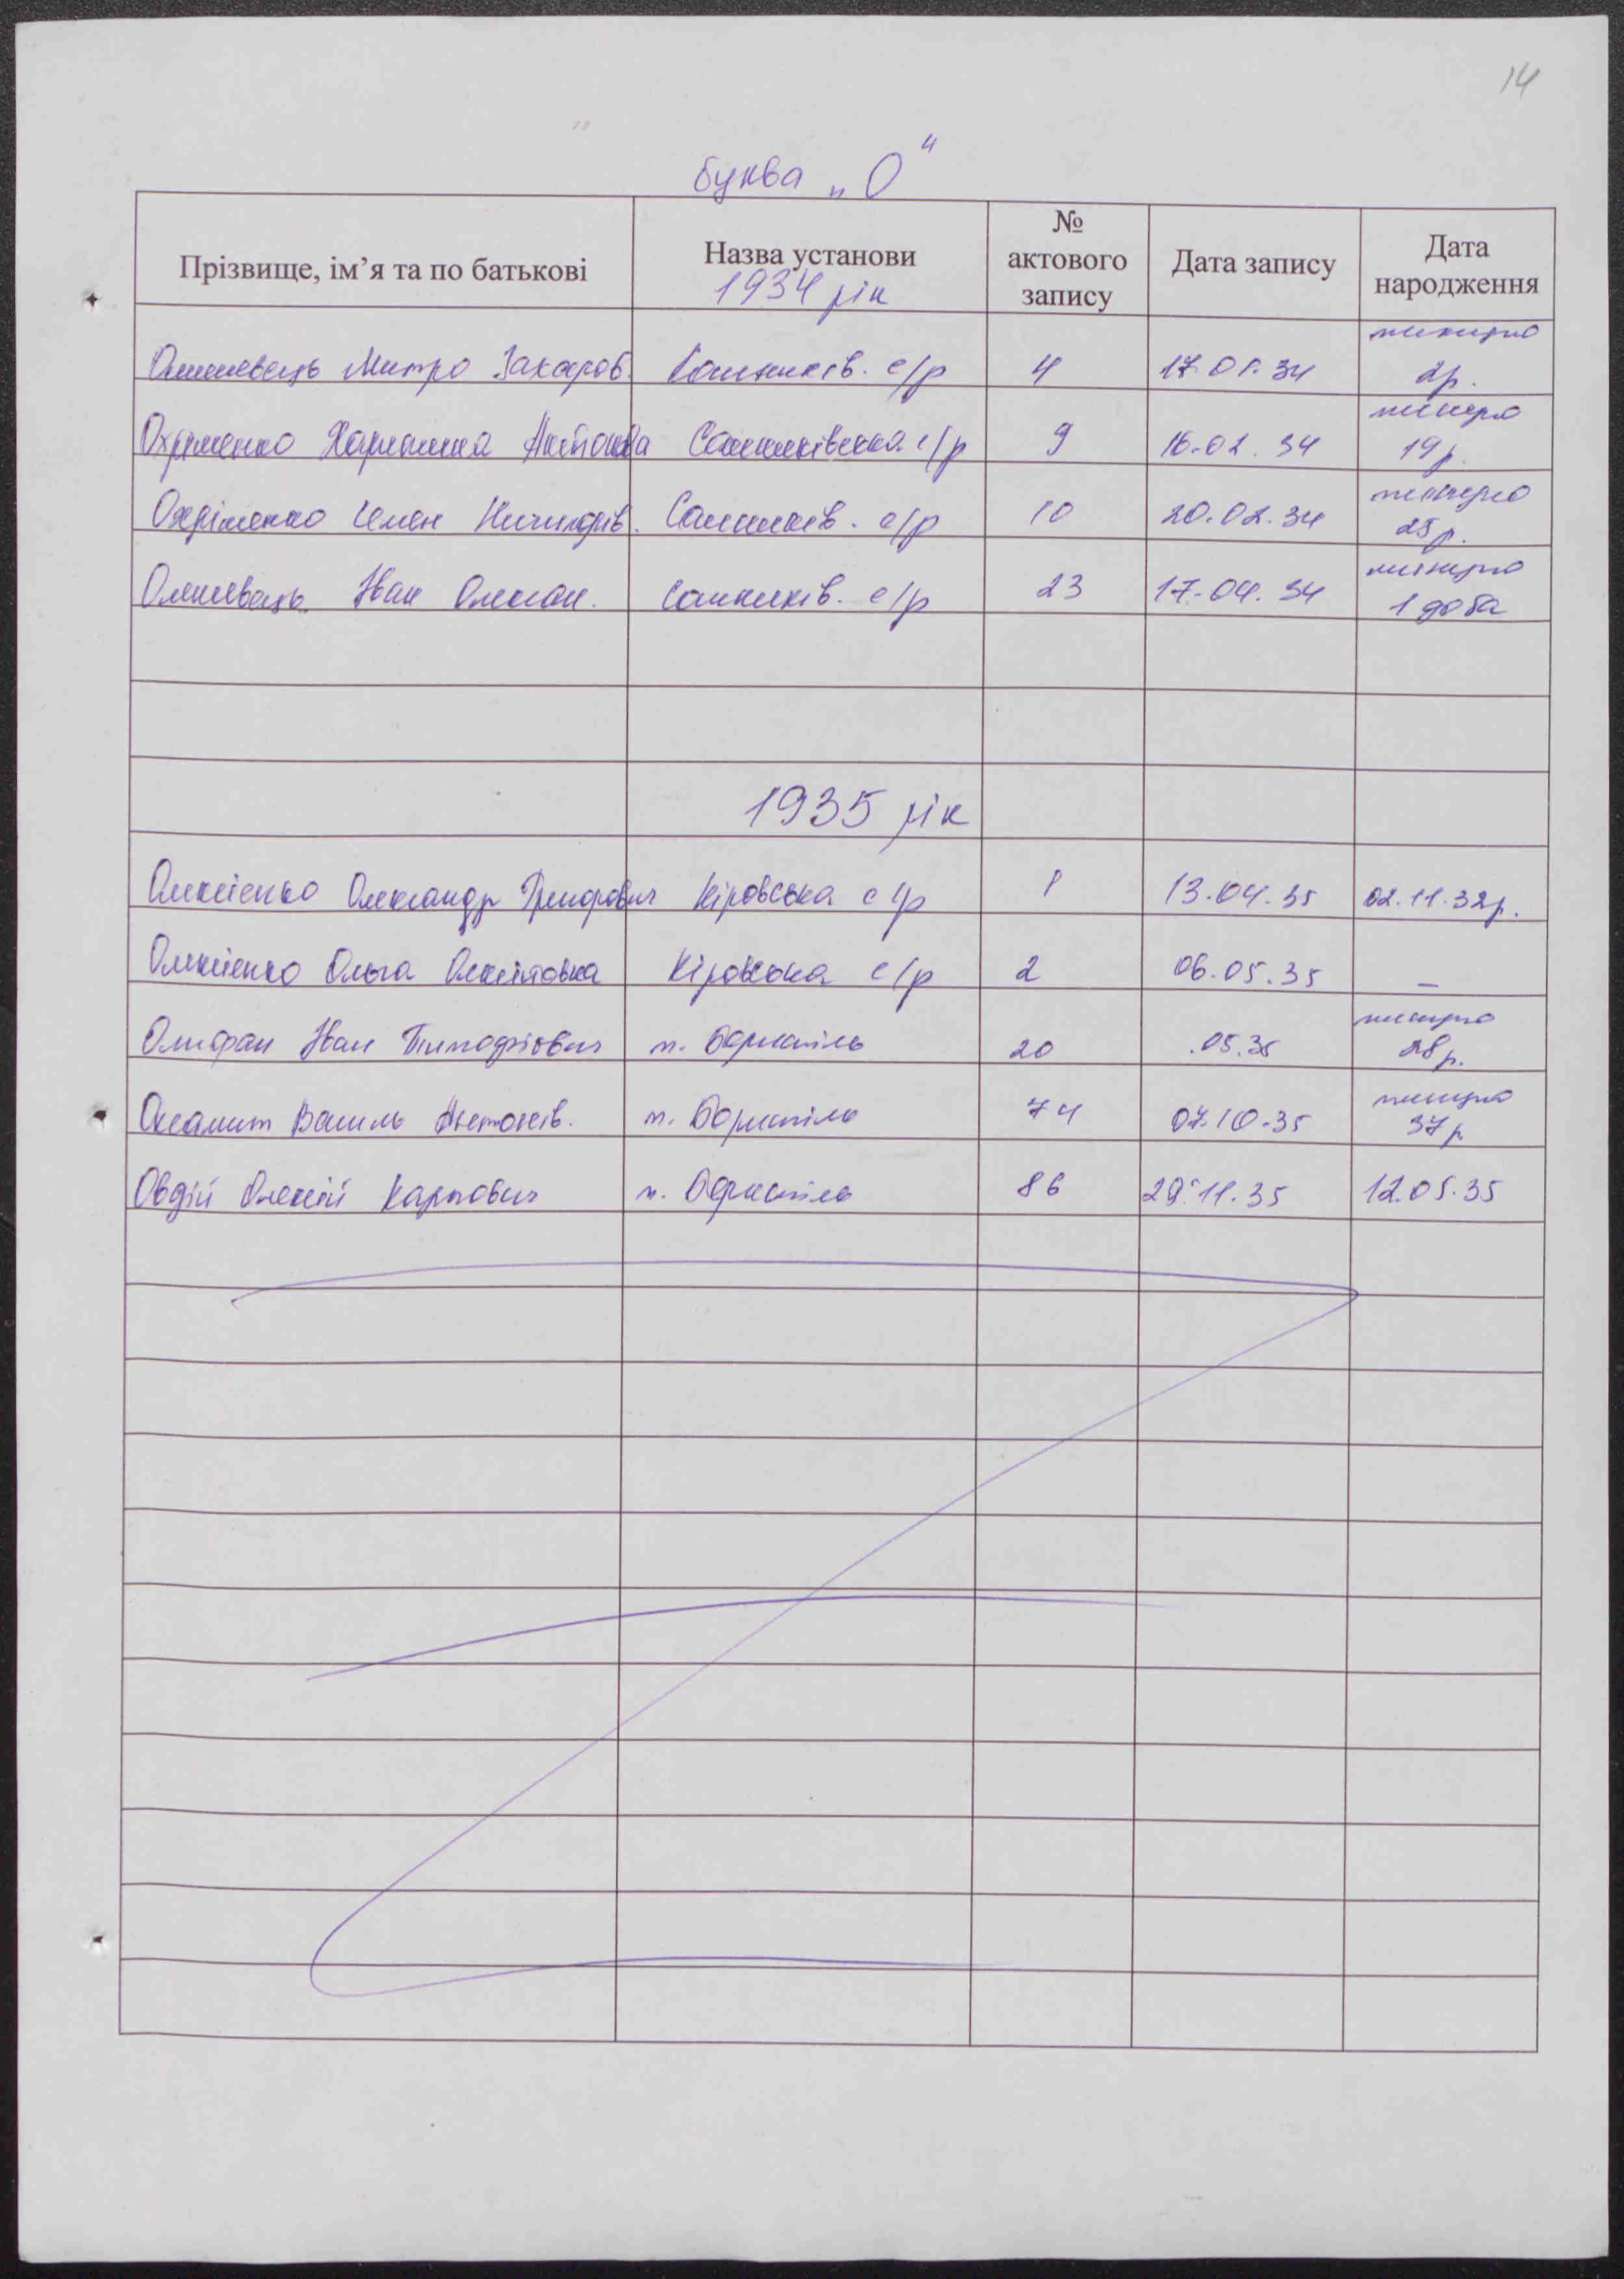 14
буква „О“
Прізвище, ім’я та по батькові Назва установи 1934 рік № актового запису Дата запису Дата народження
Олешевець Митро Захаров. с/р 4 17.01.34 померло 2р.
Охріменко Антонова Сошниківська с/р 9 16.02.34 померло 19р.
Охріменко Семен Ничипорів. Сошників. с/р 10 20.02.34 померло 25р.
Олешевець Іван Олексан. Сошников. с/р 23 17.04.34 померло 1 доба
1935 рік
Олексієнко Олександр Григорович Кіровська с/р 1 13.04.35 02.11.32р.
Олексієнко Ольга Олексіївна Кіровська с/р 2 06.05.35 –
Олифан Іван Тимофійович м. Бориспіль 20 .05.35 померло 28р.
Оксамит Василь Антонів. м. Бориспіль 74 07.10.35 померло 37р
Овдій Олексій Карпович м. Бориспіль 86 29.11.35 12.05.35